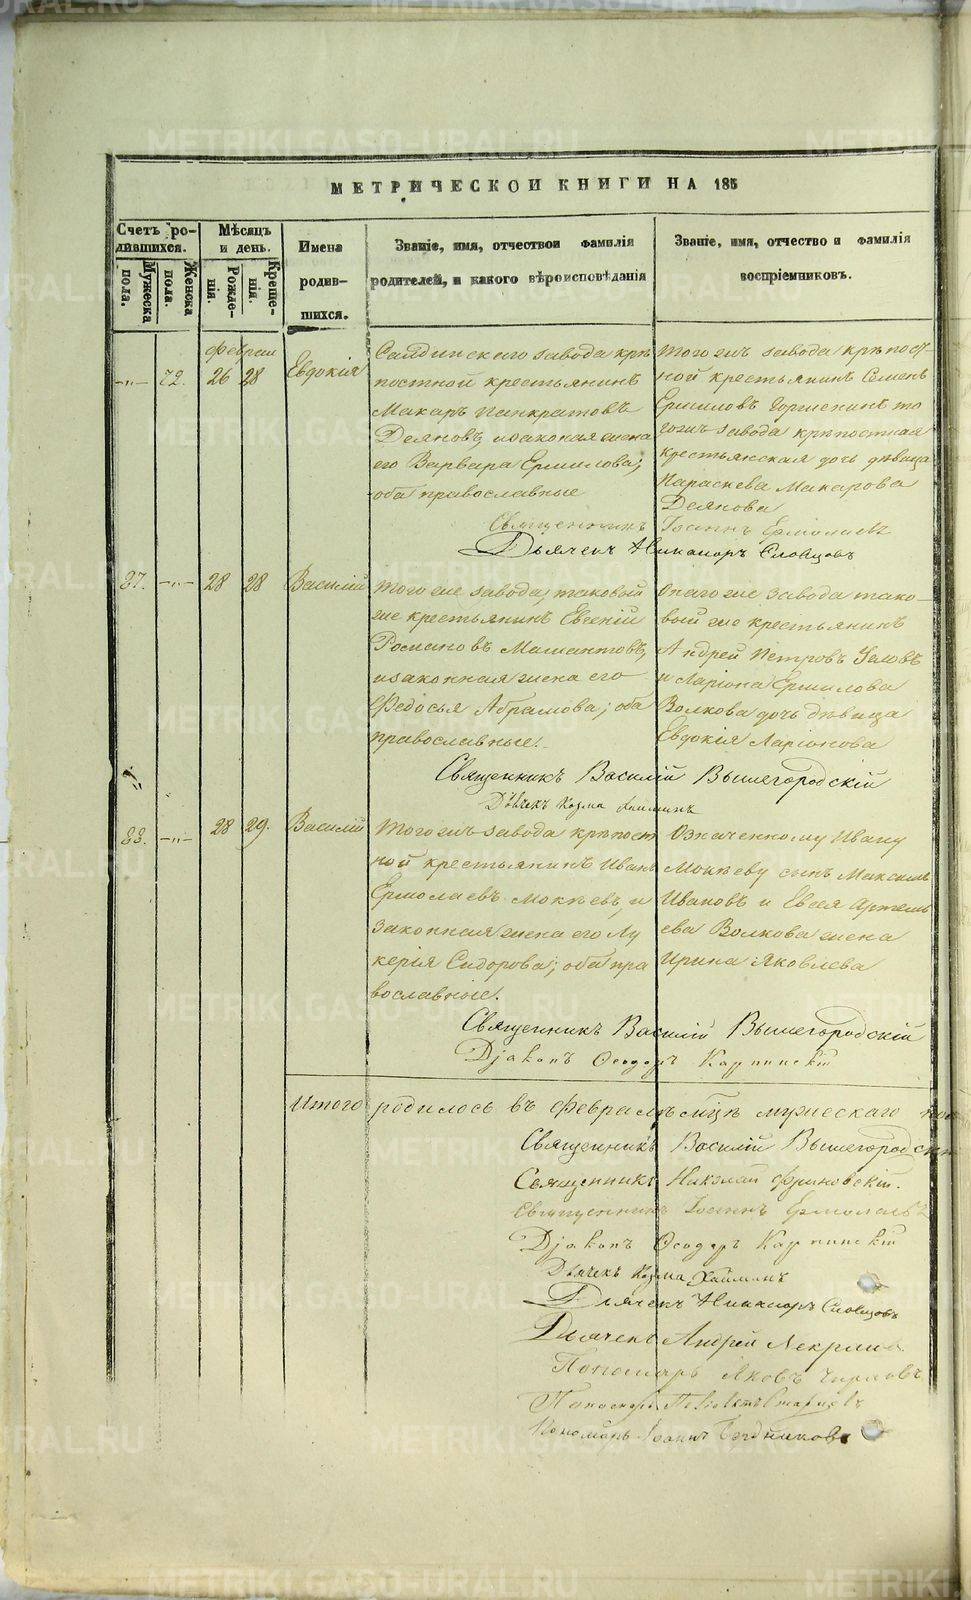 МЕТРИЧЕСКОЙ КНИГИ НА 185
Счетъ ро-
дившихся.
Мужеска
пола.
Женска
пола.
Мѣсяцъ
и день.
Рожде-
нія.
Креще-
нія.
Имена
родив-
шихся.
Званіе, имя, отчествои фамилія
родителей, и какого вѣроисповѣданія
Званіе, имя, отчество и фамилія
воспріемниковъ.
февраля
-"- 72. 26 28 Евдокія
завода крѣ
постной крестьянинъ
Макаръ Панкратовъ
Деяновъ, изаконая жена
его Варвара Ермилова;
оба православные
тогожъ завода крѣпост
ной крестьянинъ Семенъ
Ермиловъ то
гожъ завода крѣпостная
крестьянская дочь дѣвица
Параскева Макарова
Деянова
Священникъ Іоаннъ Ермолаевъ
Дьячекъ Никаноръ Словцовъ
87. -"- 28 28 Василій
тогоже завода, таковый
же крестьянинъ Евгеній
Романовъ Мамантовъ,
изаконная жена его
Федосья Абрамова; оба
православные.
Онагоже завода тако-
вый же крестьянинъ
Андрей Петровъ
и Ларіона Ермилова
Волкова дочь дѣвица
Евдокія Ларіонова
Священникъ Василій Вышегородскій
Дьячекъ Козма Хайминъ
88. -"- 28 29. Василій
тогожъ завода крѣпост
ной крестьянинъ Иванъ
Ермолаевъ Мокѣевъ, и
законная жена его Лу
керія Сидорова; оба пра
вославные.
Означенному Ивану
Мокѣеву сынъ Максимъ
Ивановъ и Евсея Артемь
ева Волкова жена
Ирина Яковлева
Священникъ Василій Вышегородскій
Діаконъ Ѳеодоръ Карпинскій
Итого родилось въ Февралѣ мцѣ мужескаго
Священникъ Василій Вышегородскій
Священникъ Николай
Священникъ Іоаннъ Ермолаевъ
Діаконъ Ѳеодоръ Карпинскій
Дьячекъ Козма Хайминъ
Дьячекъ Никаноръ Словцовъ
Дьячекъ Андрей
Пономарь Яковъ
Пономарь
Пономарь Іоаннъ